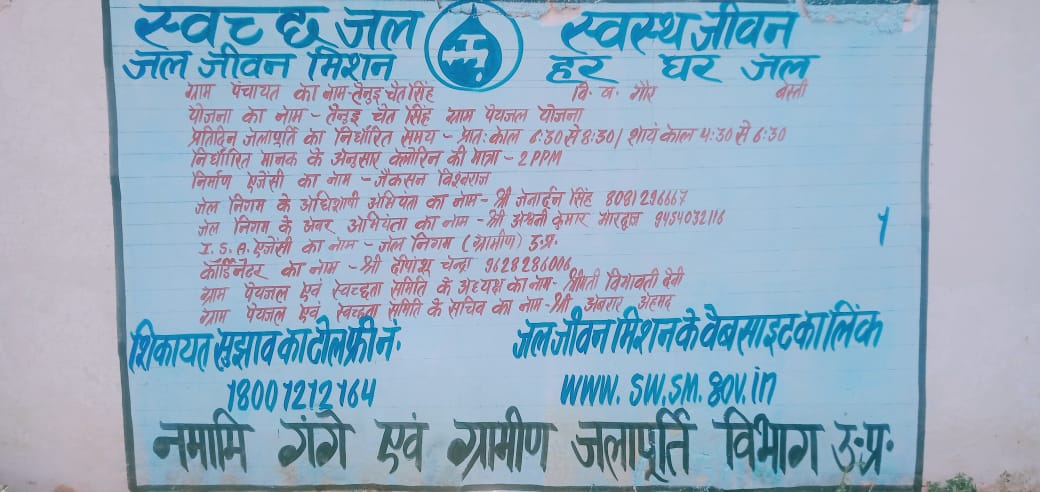 स्वच्छ जल स्वस्थ जीवन
जल जीवन मिशन हर घर जल
ग्राम पंचायत का नाम-तेनुइ चेतसिंह वि. ख. गौर बस्ती
योजना का नाम - तेनुइ चेत सिंह ग्राम पेयजल योजना
प्रतिदिन जलापूर्ति का निर्धारित समय - प्रात: काल 6:30 से 8:30/ शायं काल 4:30 से 6:30
निर्धारित मानक के अनुसार क्लोरिन की मात्रा - 2 PPM
निर्माण एजेंसी का नाम - जैकसन विश्वराज
जल निगम के अधिशाषी अभियंता का नाम- श्री जनार्दन सिंह 8081296667
जल निगम के अवर अभियंता का नाम - श्री अश्वनी कुमार भारद्वाज 9454032116
I. S. A. एजेंसी का नाम - जल निगम (ग्रामीण) उ.प्र.
कॉर्डिनेटर का नाम - श्री दीपांशू चन्द्रा 9628286006
ग्राम पेयजल एवं स्वच्छता समिति के अध्यक्ष का नाम- श्रीमती विभावती देवी
ग्राम पेयजल एवं स्वच्छता समिति के सचिव का नाम-श्री अबरार अहमद
1
शिकायत सुझाव का टोल फ्री नं. जल जीवन मिशन के वेबसाइट का लिंक
18001212164 www. sw.sm.gov.in
नमामि गंगे एवं ग्रामीण जलापूर्ति विभाग उ.प्र.